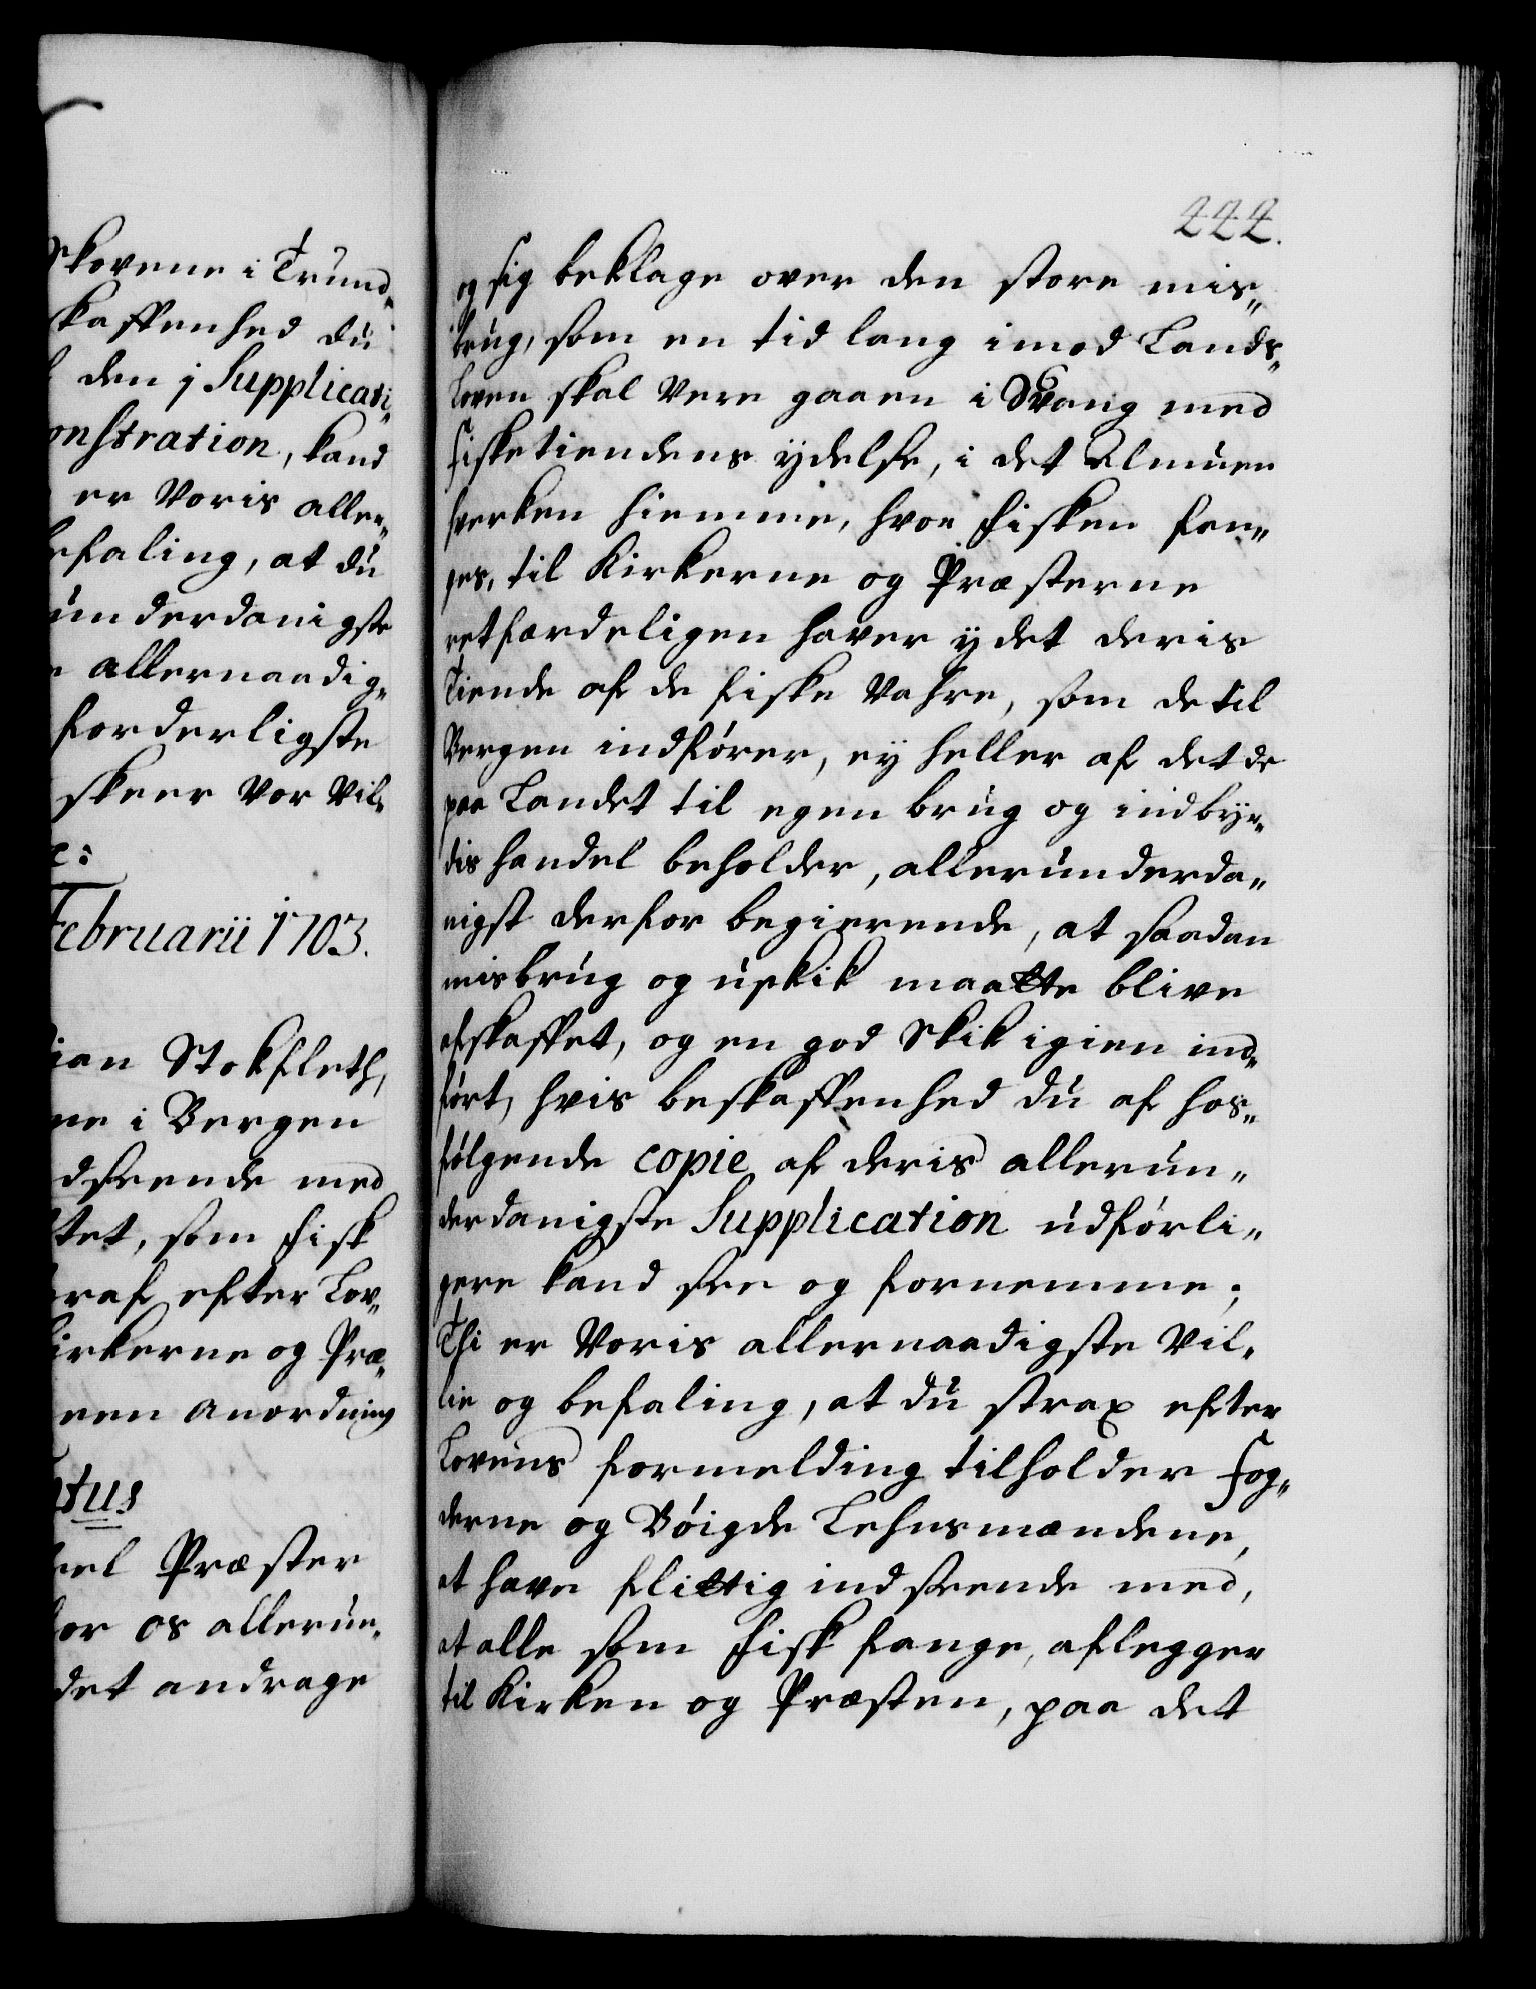 Skovene i Trund-
skaffenhed du
den i Supplicati-
onstration, kand
er Voris aller-
befaling, at du
underdanigste
allernaadig-
forderligste
skeer Vor Vil-
Februarii 1703.
ian Stokfleth,
ne i Bergen
dseende med
tet, som fisk
eraf efter Lov-
Kirkerne og Præ-
een anordning
tus
eel Præster
for os allerun-
det andrage
222.
og sig beklage over den store mis-
brug, som en tid lang imod Lands-
Loven skal Vere gaaen i Svang med
fisketiendens ydelse, i det almuen
hverken hiemme, hvor fisken fan-
ges, til Kirkerne og Præsterne
retfærdeligen haver ydet deris
Tiende af de fiske Vahre, som de til
Bergen indfører, ey heller af det de
paa Landet til egen brug og indbyr-
dis handel beholder, allerunderda-
nigst derfor begierende, at saadan
misbrug og uskik maatte blive
afskaffet, og en god Skik igien ind-
ført, hvis beskaffenhed du af hos-
følgende copie af deris allerun-
derdanigste Supplication udførli-
gere kand see og fornemme;
Thi er Voris allernaadigste Vil-
lie og befaling, at du strax efter
Lovens formelding tilholder Fog-
derne og Bøigde Lehnsmændene,
at have flittig indseende med,
at alle som fisk fange, aflegger
til Kirken og Præsten, paa det